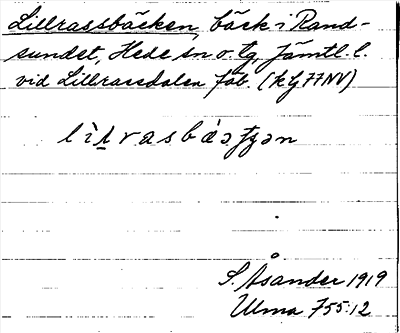 Lillrassbäcken, bäck i Rand-
sundet, Hede sn o. tg, Jämtl. l.
vid Lillrassdalen fäb. (k bj 77 NV)
S. Åsander 1919
Ulma 755:12